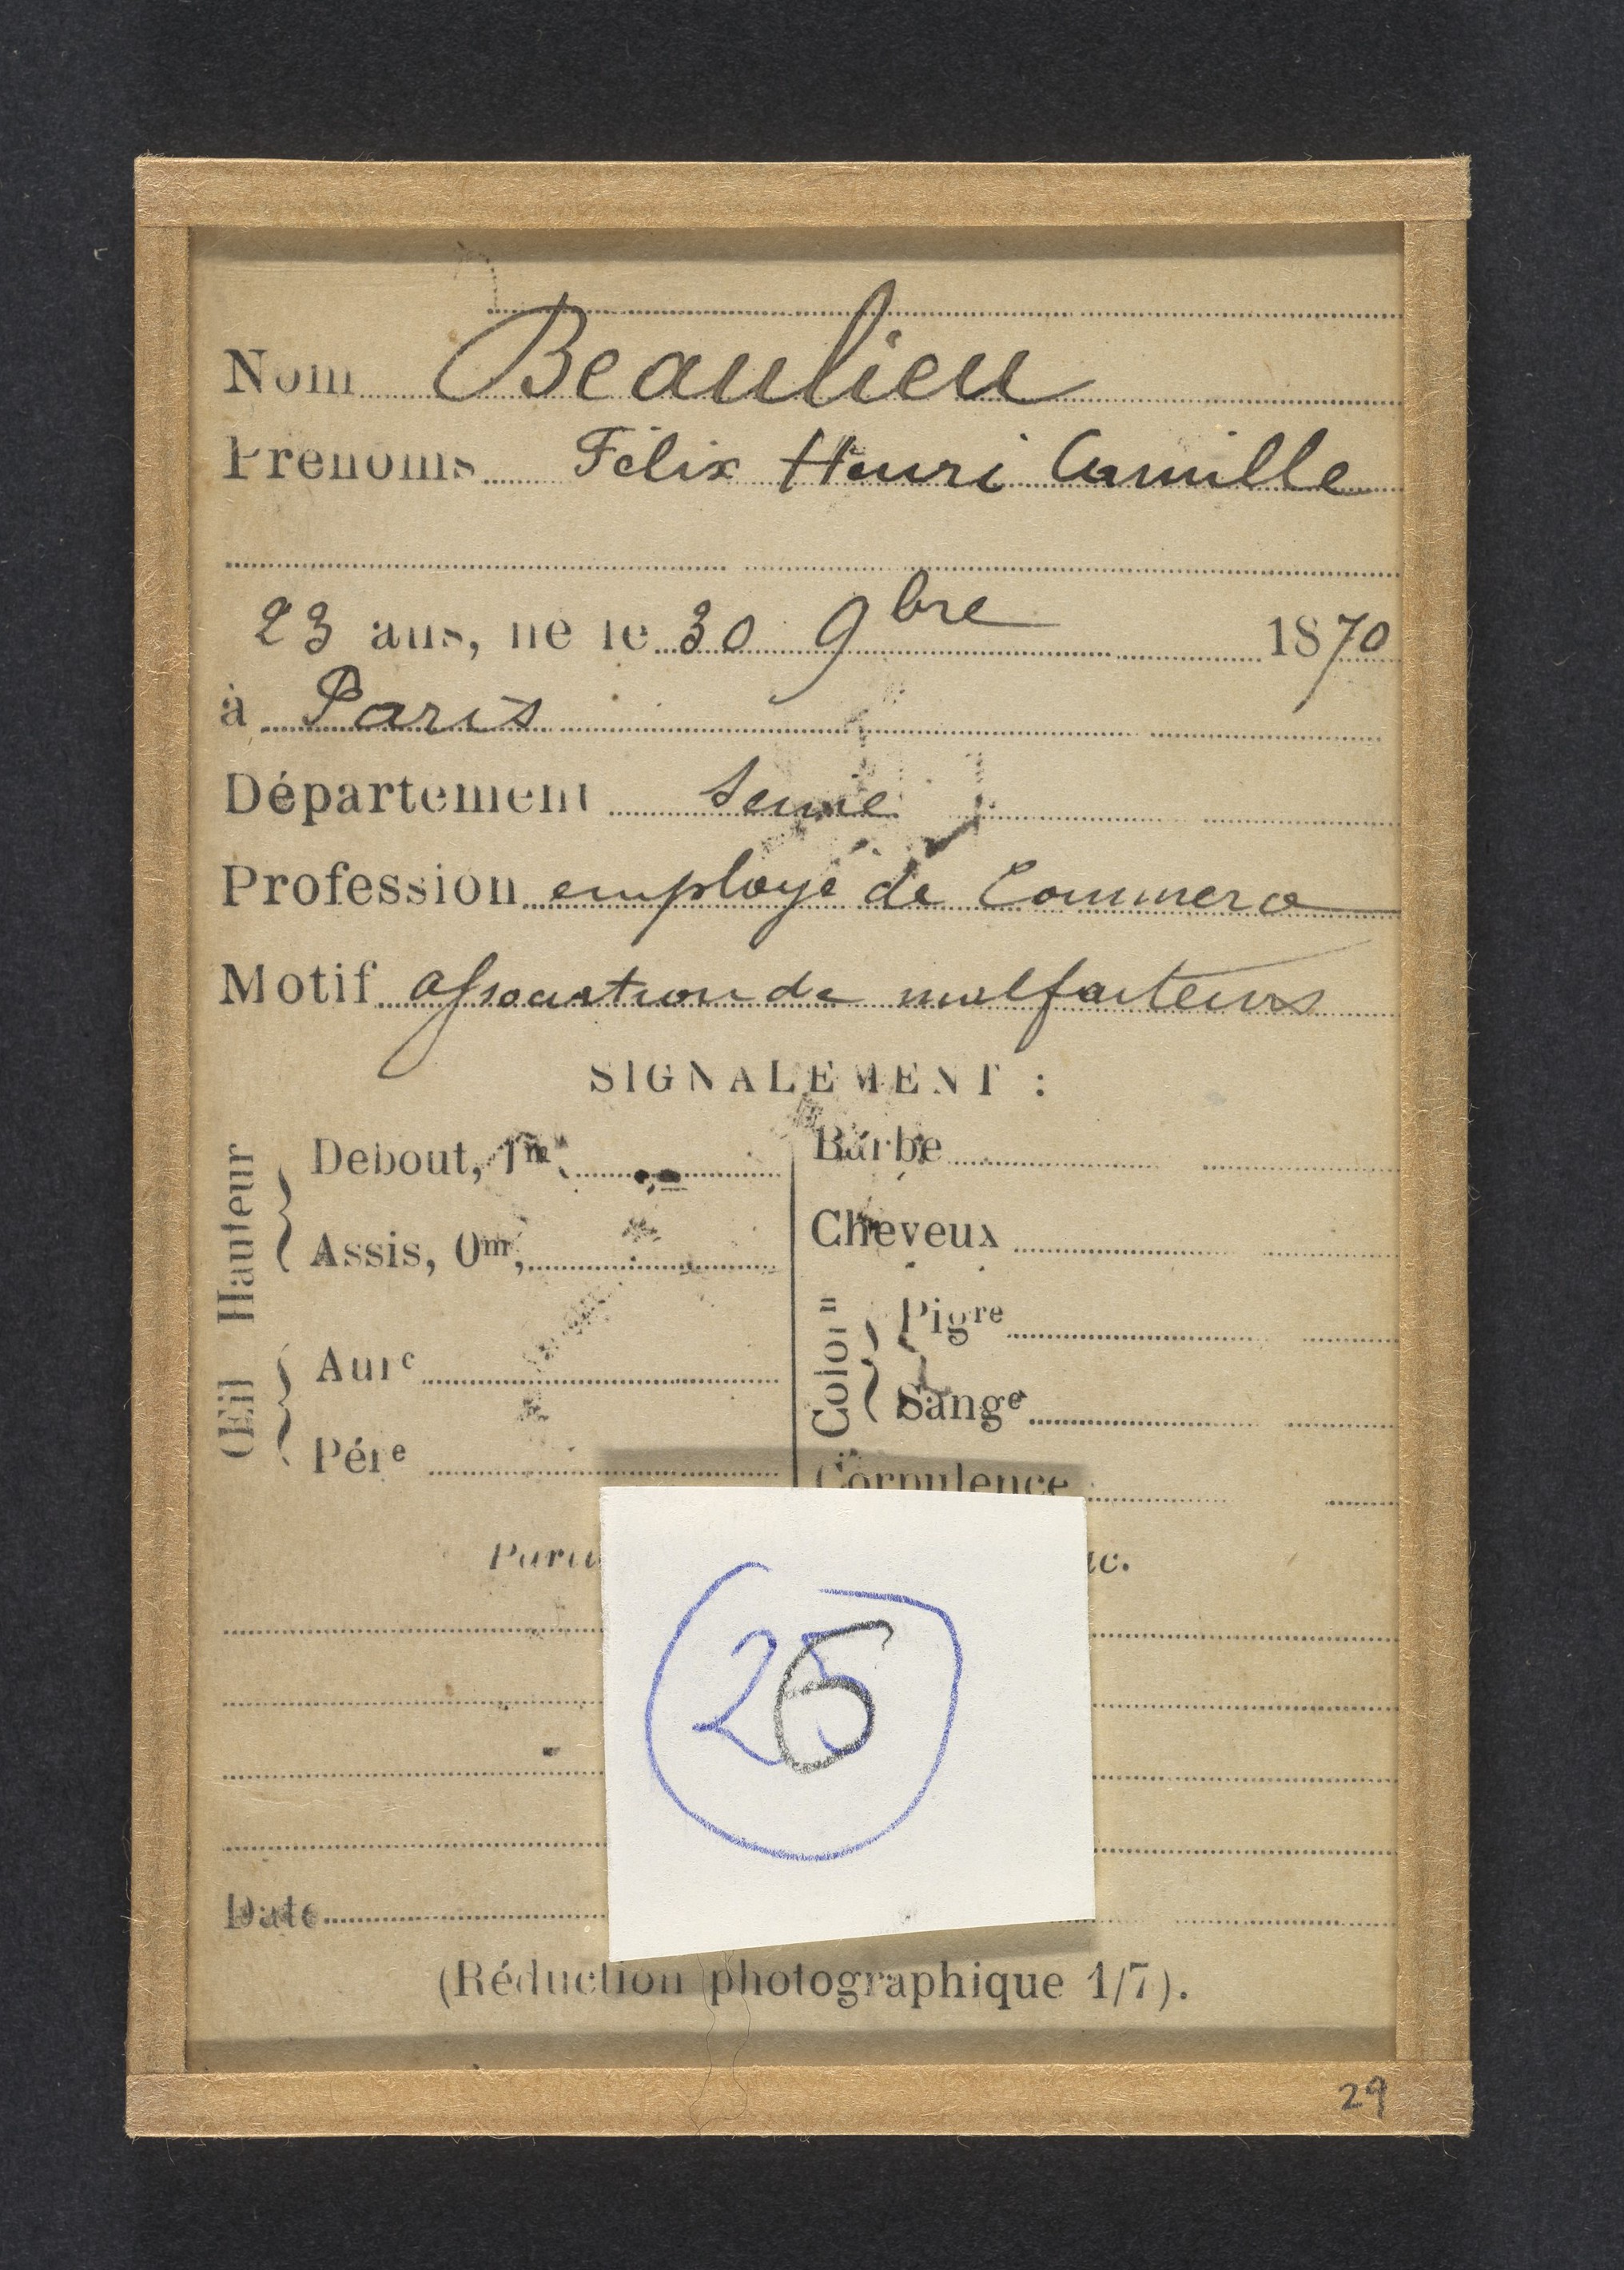 Nom Beaulieu
Prénoms Félix Henri Camille
23 ans, né le 30 9bre 1870
à Paris
Département Seine
Profession employé de Commerce
Motif association de malfaiteurs
SIGNALEMENT :
Hauteur
Debout, 1m,
Assis, 0m,
Œil
Aure
Pére
Barbe
Cheveux
Coloron
Pigre
Sange
Corpulence
25
Date
(Réduction photographique 1/7).
29